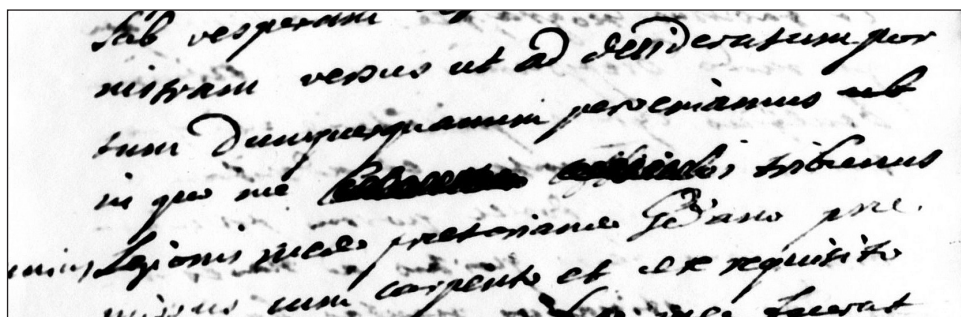 Sub vesperam
nistram versus ut ad desideratum por
tum Dunquerquanum perveniamus
in quo me tribunus
Legionis meae praetorianae pre
missus cum carpento et ex requisito
fuerat